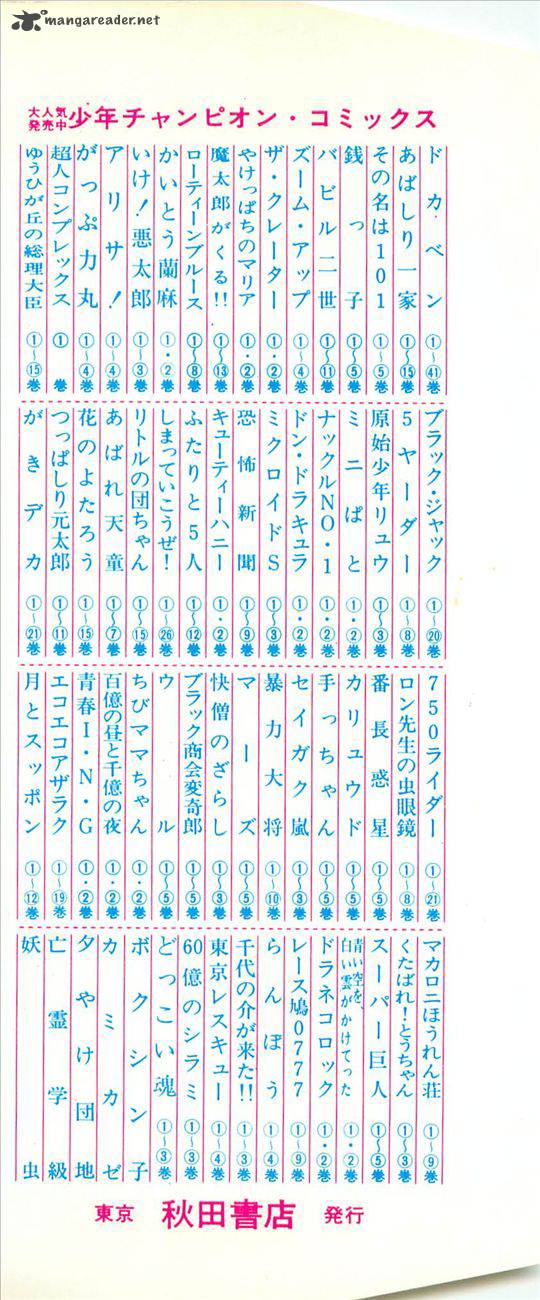 mangareader.net
大人気
発売中
少年チャンピオン・コミックス
ドカベン ①〜㊶巻
あばしり一家 ①〜⑮巻
その名は101 ①〜⑤巻
銭っ子 ①〜⑤巻
バビル二世 ①〜⑪巻
ズーム・アップ ①〜④巻
ザ・クレーター ①・②巻
やけっぱちのマリア ①・②巻
魔太郎がくる!! ①〜⑬巻
ローティーンブルース ①〜⑧巻
かいとう蘭麻 ①・②巻
いけ!悪太郎 ①〜③巻
アリサ! ①〜④巻
がっぷ力丸 ①〜④巻
超人コンプレックス ①巻
ゆうひが丘の総理大臣 ①〜⑮巻
ブラック・ジャック ①〜⑳巻
5ヤーダー ①〜⑧巻
原始少年リュウ ①〜③巻
ミニぱと ①・②巻
ナックルNO・1 ①・②巻
ドン・ドラキュラ ①・②巻
ミクロイドS ①〜③巻
恐怖新聞 ①〜⑨巻
キューティーハニー ①・②巻
ふたりと5人 ①〜⑫巻
しまっていこうぜ! ①〜㉖巻
リトルの団ちゃん ①〜⑮巻
あばれ天童 ①〜⑦巻
花のよたろう ①〜⑮巻
つっぱしり元太郎 ①〜⑪巻
がきデカ ①〜㉑巻
750ライダー ①〜㉑巻
ロン先生の虫眼鏡 ①〜⑧巻
番長惑星 ①〜⑤巻
カリュウド ①〜⑤巻
手っちゃん ①〜⑤巻
セイガク嵐 ①〜③巻
暴力大将 ①〜⑩巻
マーズ ①〜⑤巻
快僧のざらし ①〜③巻
ブラック商会変奇郎 ①〜⑤巻
ウル ①〜⑤巻
ちびママちゃん ①・②巻
百億の昼と千億の夜 ①・②巻
青春I・N・G ①・②巻
エコエコアザラク ①〜⑲巻
月とスッポン ①〜⑫巻
マカロニほうれん荘 ①〜⑨巻
くたばれ!とうちゃん ①〜③巻
スーパー巨人 ①〜⑤巻
青い空を、
白い雲がかけてった ①・②巻
ドラネコロック ①・②巻
レース鳩0777 ①〜⑨巻
らんぽう ①〜④巻
千代の介が来た!! ①〜③巻
東京レスキュー ①〜④巻
60億のシラミ ①〜③巻
どっこい魂 ①〜③巻
ボクシン子
カミカゼ
夕やけ団地
亡霊学級
妖虫
東京 秋田書店 発行